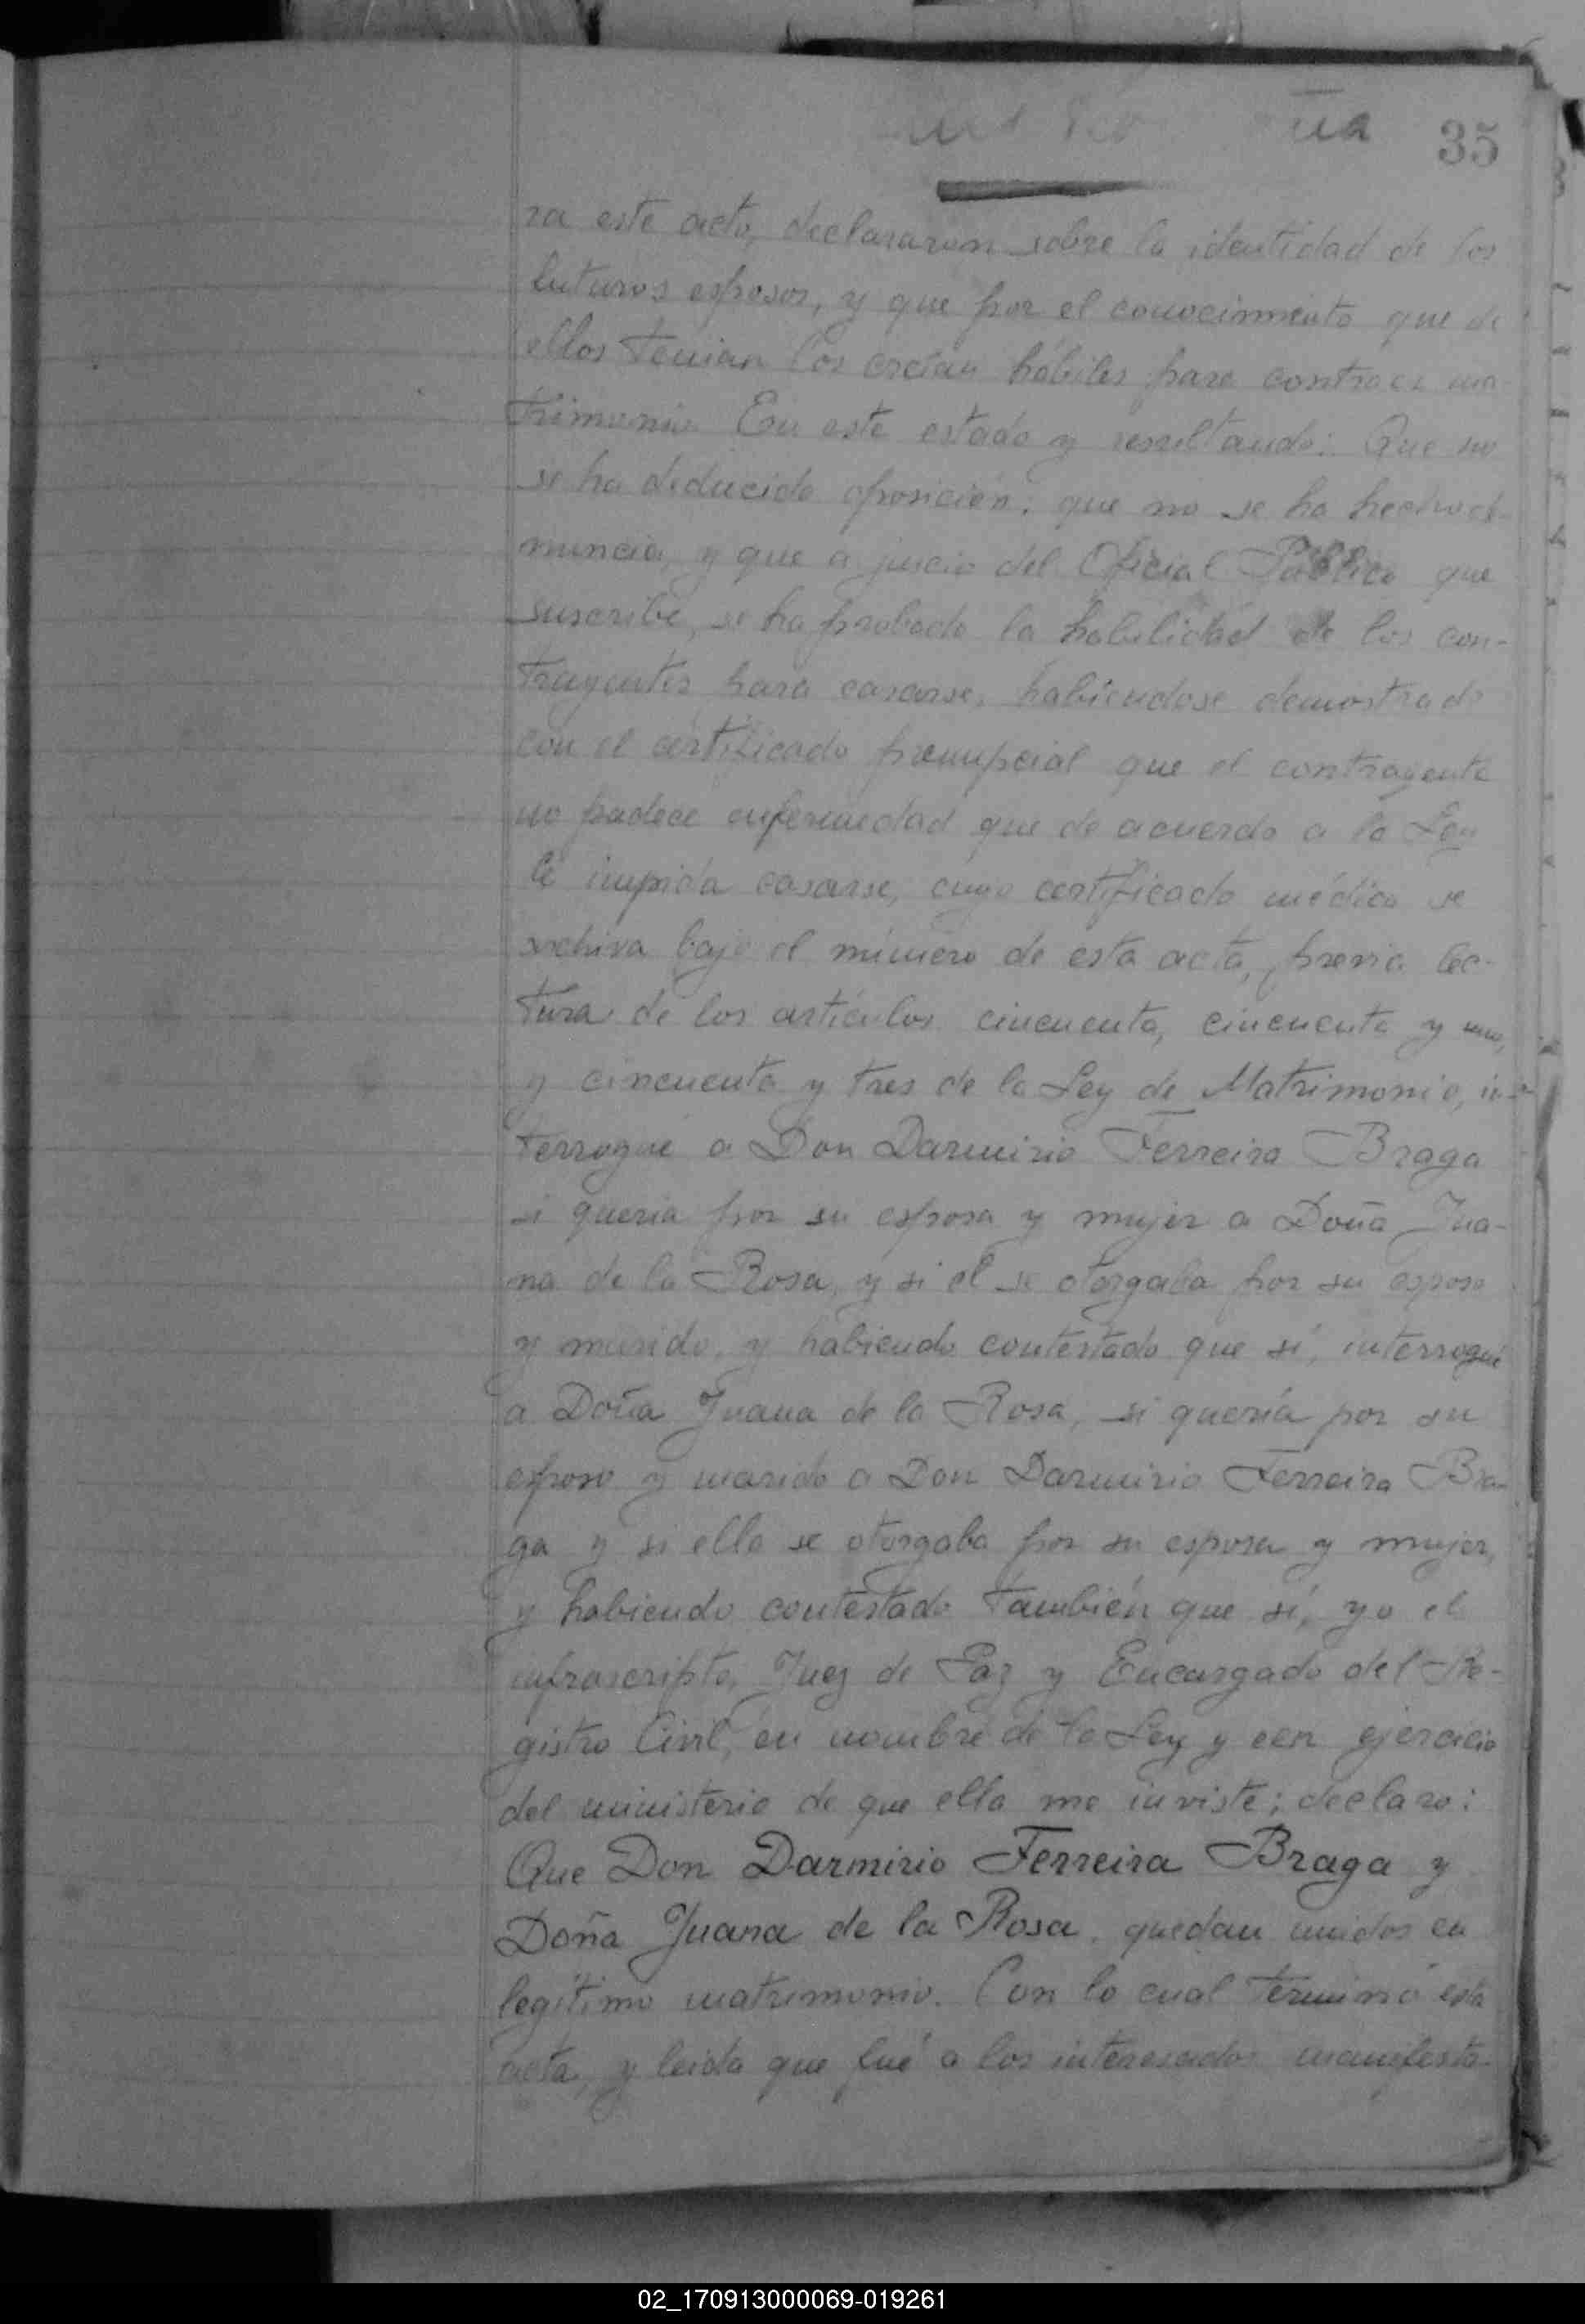 35
ra este acto, declararon sobre la identidad de los
futuros esposos, y que por el conocimiento que de
ellos tenian los creían hábiles para contraer ma-
trimonio. En este estado y resultando: Que no
se ha deducido oposición; que no se ha hecho de-
nuncia, y que a juicio del Oficial Público que
suscribe, se ha probado la habilidad de los con-
trayentes para casarse, habiendose demostrado
con el certificado prenupcial que el contrayente
no padece enfermedad que de acuerdo a la Ley
le impida casarse, cuyo certificado médico se
archiva bajo el número de esta acta, previa lec-
tura de los artículos cincuenta, cincuenta y uno,
y cincuenta y tres de la Ley de Matrimonio, in-
terrogué a Don Darmirio Ferreira Braga
si queria por su esposa y mujer a Doña Jua-
na de la Rosa, y si el se otorgaba por su esposo
y marido, y habiendo contestado que sí, interrogué
a Doña Juana de la Rosa, si quería por su
esposo y marido a Don Darmirio Ferreira Bra-
ga y si ella se otorgaba por su esposa y mujer,
y habiendo contestado también que sí, yo el
infrascripto, Juez de Paz y Encargado del Re-
gistro Civil, en nombre de la Ley y een ejercicio
del ministerio de que ella me inviste; declaro:
Que Don Darmirio Ferreira Braga y
Doña Juana de la Rosa, quedan unidos en
legítimo matrimonio. Con lo cual terminó esta
acta, y leida que fué a los interesados manifesta-
02_170913000069-019261